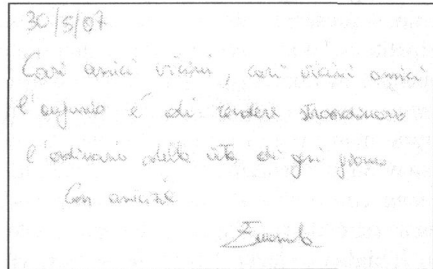 30/5/07
Cari amici vicini, cari vicini amici
l'augurio è di rendere straordinario
l'ordinario della vita di ogni giorno
Con amicizia